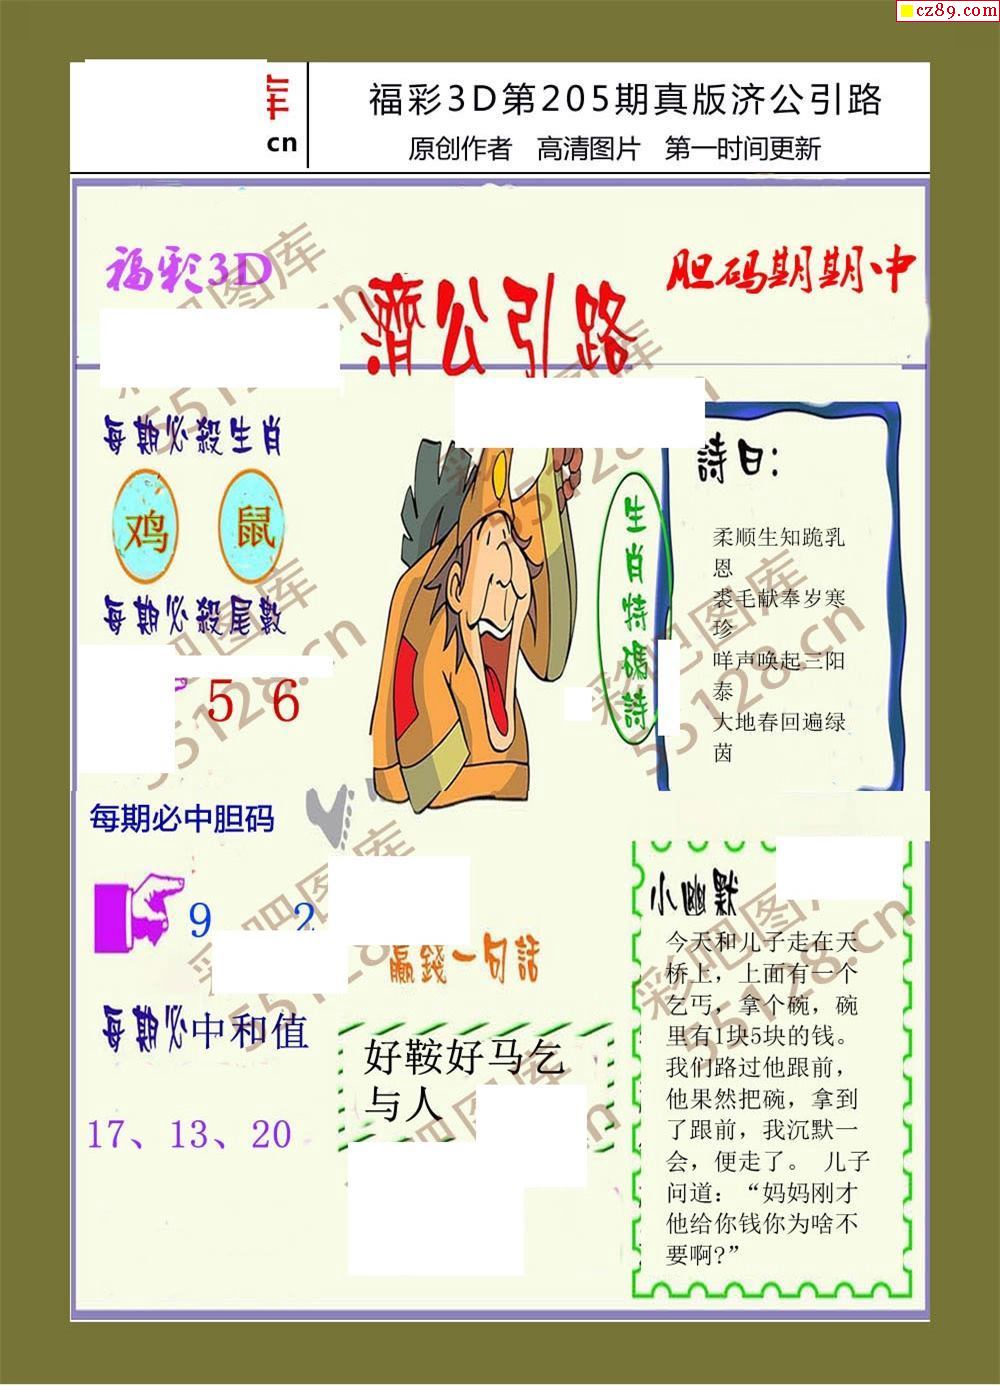 cz89.com
库
cn
福彩3D第205期真版济公引路
原创作者 高清图片 第一时间更新
福彩3D
濟公引路
胆码期期中
每期必殺生肖
鸡 鼠
每期必殺尾數
5 6
每期必中胆码
9 2
每期必中和值
17、13、20
生肖特碼詩
詩曰：
柔顺生知跪乳
恩
裘毛献奉岁寒
珍
咩声唤起三阳
泰
大地春回遍绿
茵
贏錢一句話
好鞍好马乞
与人
小幽默
今天和儿子走在天
桥上，上面有一个
乞丐，拿个碗，碗
里有1块5块的钱。
我们路过他跟前，
他果然把碗，拿到
了跟前，我沉默一
会，便走了。 儿子
问道：“妈妈刚才
他给你钱你为啥不
要啊?”
彩吧图库
55128.cn
彩吧图库
55128.cn
彩吧图库
55128.cn
彩吧图库
55128.cn
彩吧图库
55128.cn
彩吧图库
55128.cn